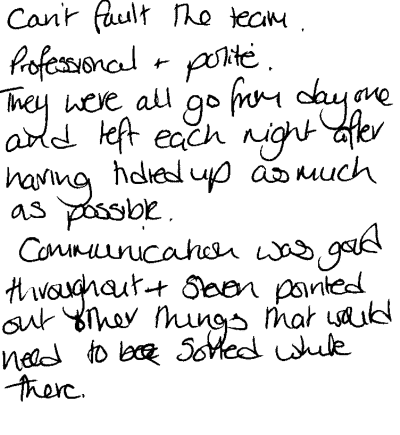 Can't fault the team.
Professional + polite.
They were all go from day one
and left each night after
having tidied up as much
as possible.
Communication was good
throughout + pointed
out other things that would
need to be sorted while
there.